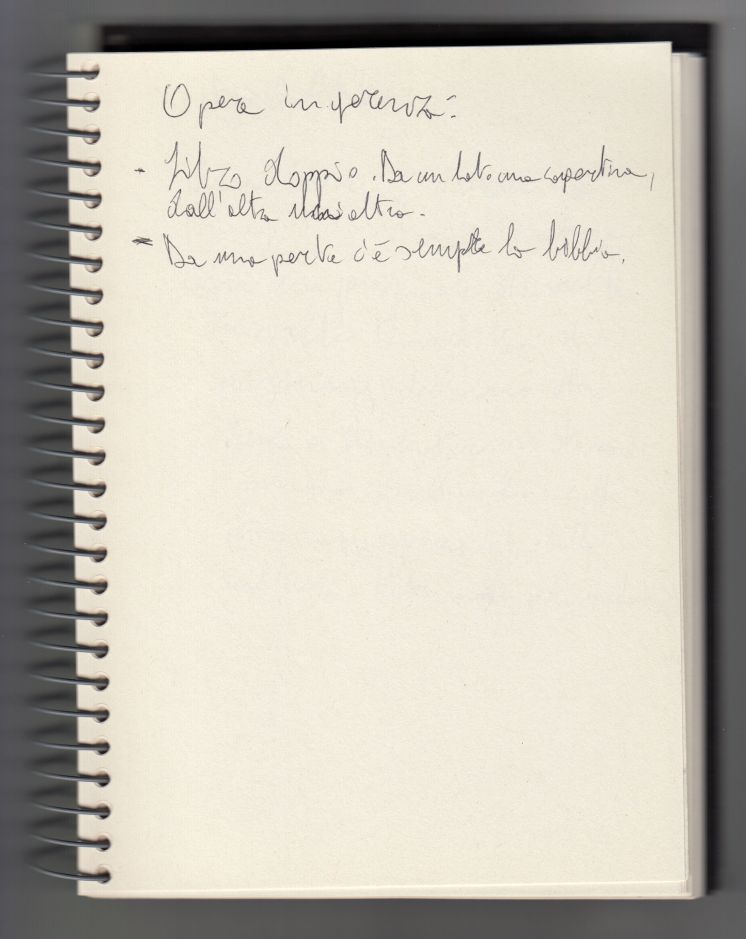 Opera inferenza:
- Libro doppio. Da un lato una copertina,
dall'altro un'altra.
- Da una parte c'è sempre la bibbia.